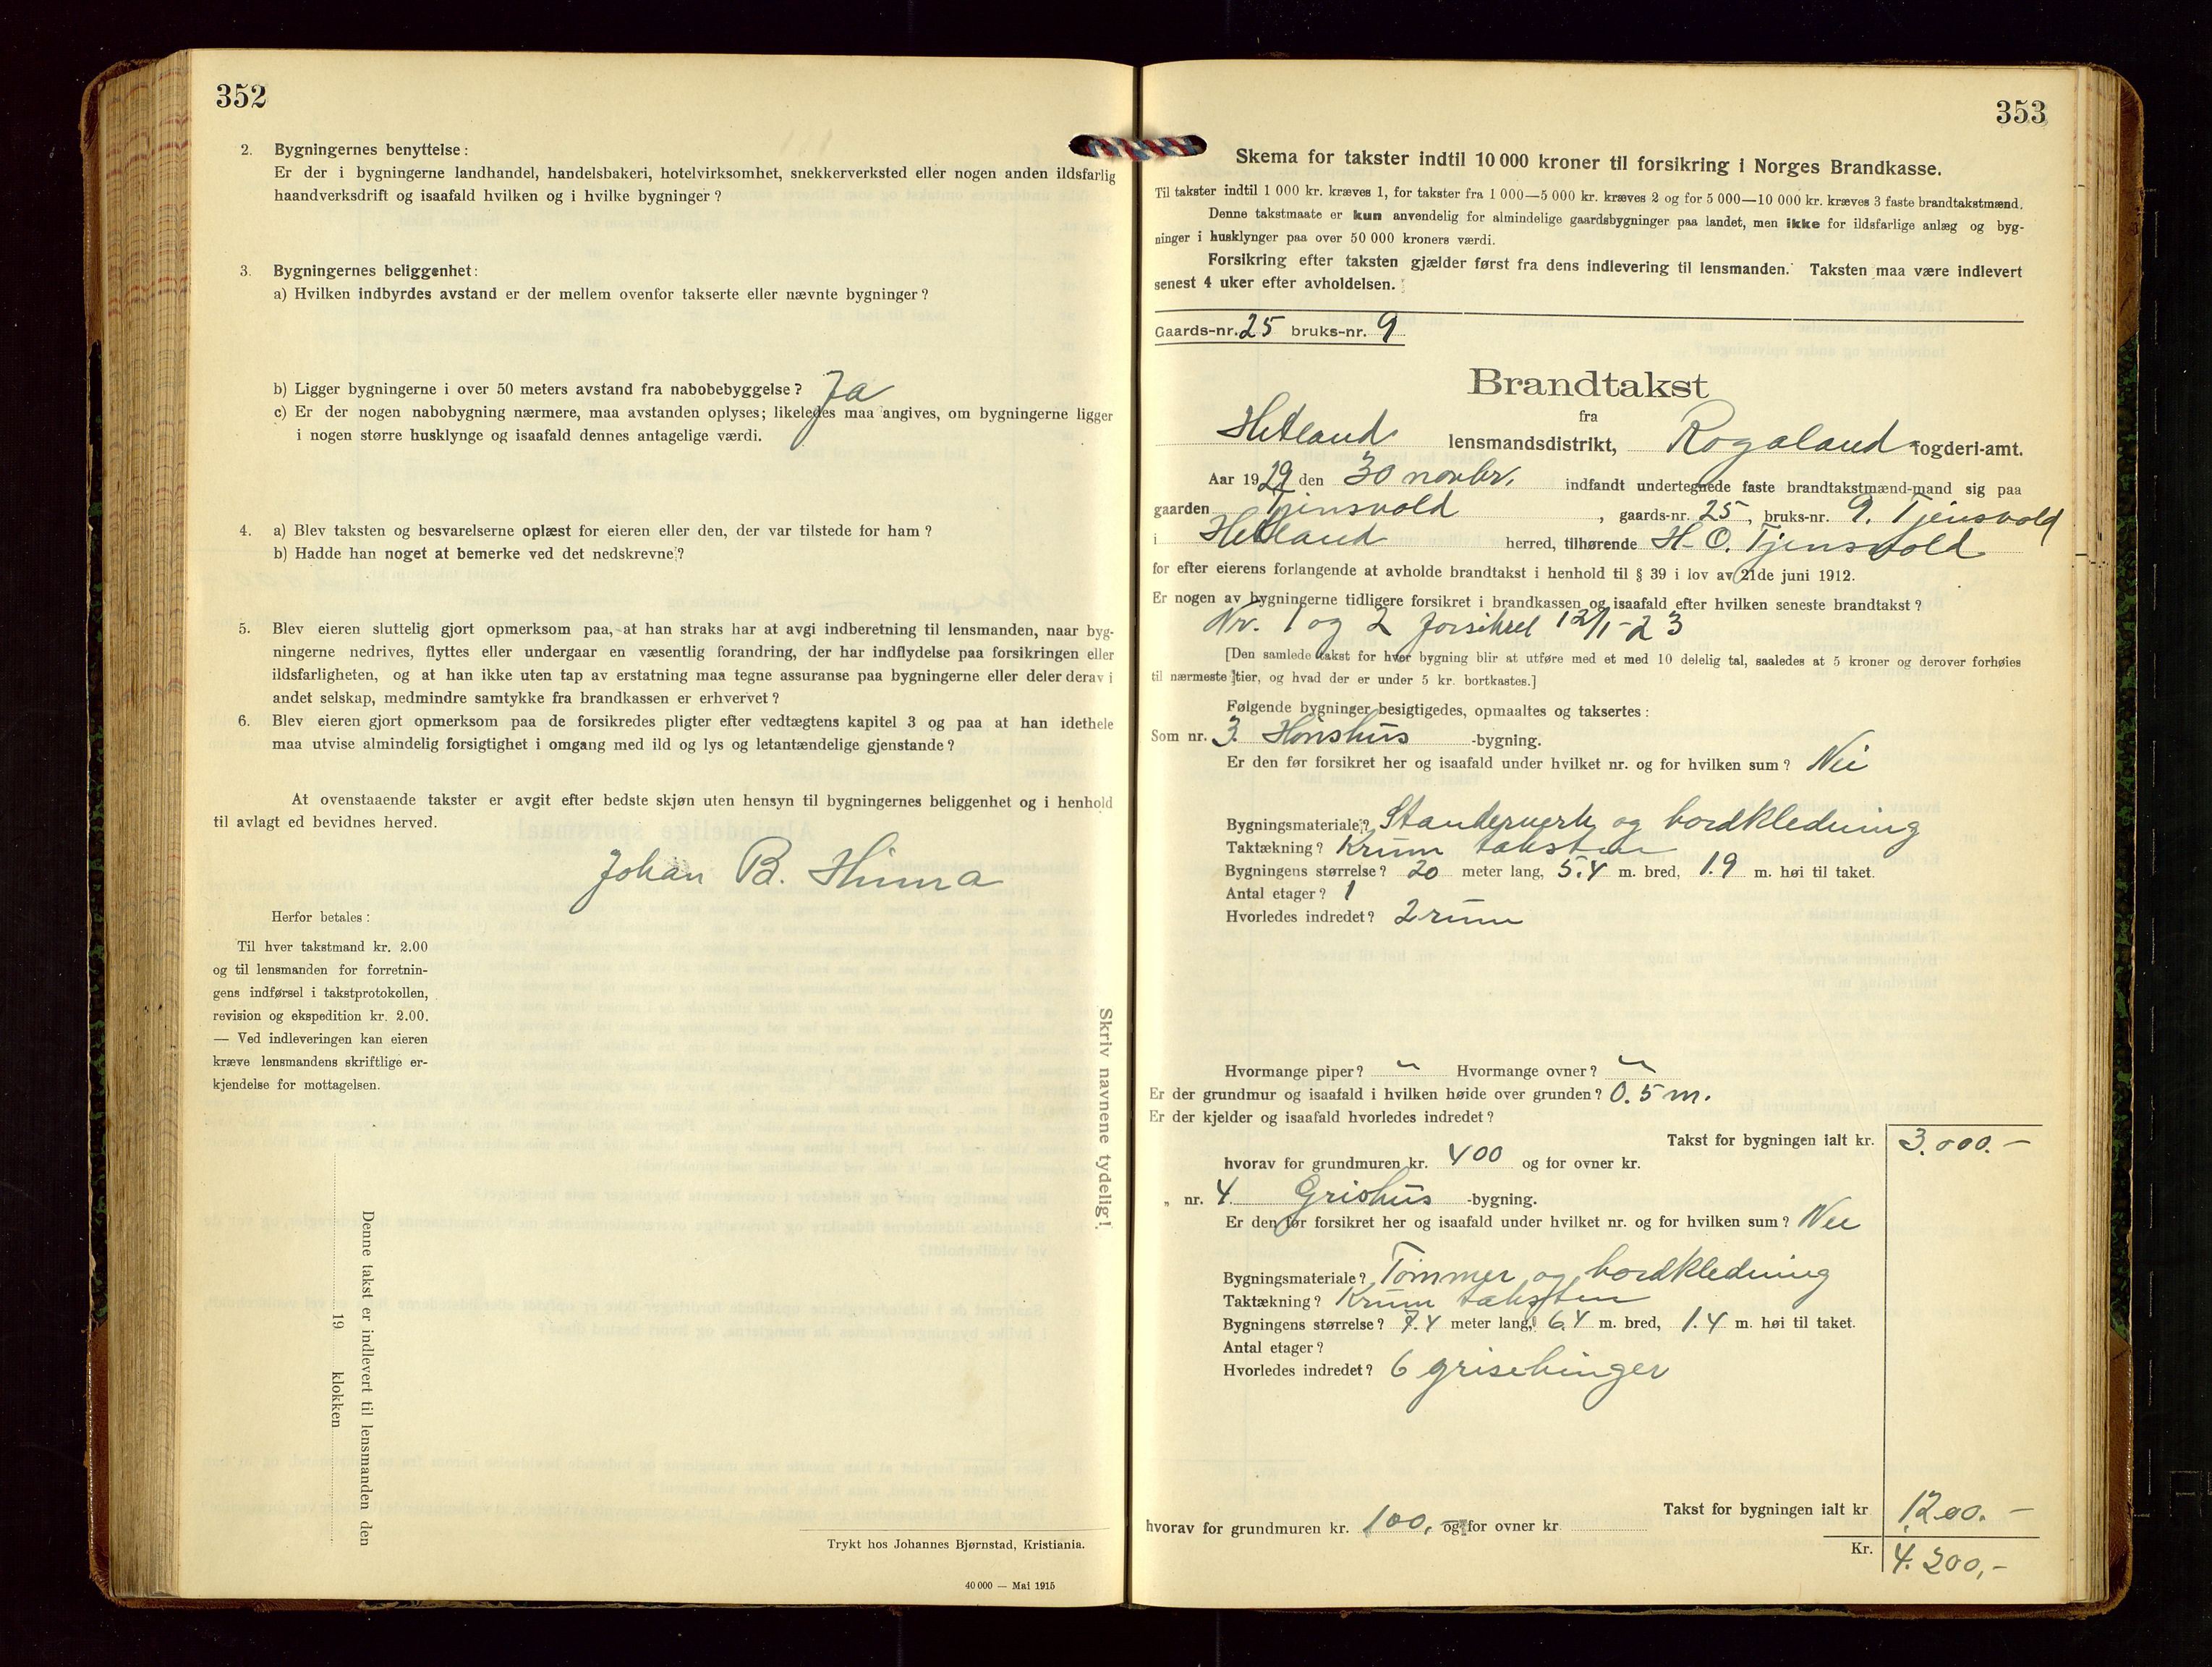 352
2. Bygningernes benyttelse:
Er der i bygningerne landhandel, handelsbakeri, hotelvirksomhet, snekkerverksted eller nogen anden ildsfarlig
haandverksdrift og isaafald hvilken og i hvilke bygninger?
3. Bygningernes beliggenhet:
a) Hvilken indbyrdes avstand er der mellem ovenfor takserte eller nævnte bygninger?
b) Ligger bygningerne i over 50 meters avstand fra nabobebyggelse? Ja
c) Er der nogen nabobygning nærmere, maa avstanden oplyses; likeledes maa angives, om bygningerne ligger
i nogen større husklynge og isaafald dennes antagelige værdi.
4. a) Blev taksten og besvarelserne oplæst for eieren eller den, der var tilstede for ham?
b) Hadde han noget at bemerke ved det nedskrevne?
5. Blev eieren sluttelig gjort opmerksom paa, at han straks har at avgi indberetning til lensmanden, naar byg-
ningerne nedrives, flyttes eller undergaar en væsentlig forandring, der har indflydelse paa forsikringen eller
ildsfarligheten, og at han ikke uten tap av erstatning maa tegne assuranse paa bygningerne eller deler derav i
andet selskap, medmindre samtykke fra brandkassen er erhvervet?
6. Blev eieren gjort opmerksom paa de forsikredes pligter efter vedtægtens kapitel 3 og paa at han idethele
maa utvise almindelig forsigtighet i omgang med ild og lys og letantændelige gjenstande?
At ovenstaaende takster er avgit efter bedste skjøn uten hensyn til bygningernes beliggenhet og i henhold
til avlagt ed bevidnes herved.
Johan B. Hinna
Herfor betales:
Til hver takstmand kr. 2.00
og til lensmanden for forretnin-
gens indførsel i takstprotokollen,
revision og ekspedition kr. 2.00.
— Ved indleveringen kan eieren
kræve lensmandens skriftlige er-
kjendelse for mottagelsen.
Denne takst er indlevert til lensmanden den
19 klokken
Skriv navnene tydelig!
Trykt hos Johannes Bjørnstad, Kristiania.
40 000 — Mai 1915
353
Skema for takster indtil 10 000 kroner til forsikring i Norges Brandkasse.
Til takster indtil 1 000 kr. kræves 1, for takster fra 1 000—5 000 kr. kræves 2 og for 5 000—10 000 kr. kræves 3 faste brandtakstmænd.
Denne takstmaate er kun anvendelig for almindelige gaardsbygninger paa landet, men ikke for ildsfarlige anlæg og byg-
ninger i husklynger paa over 50 000 kroners værdi.
Forsikring efter taksten gjælder først fra dens indlevering til lensmanden. Taksten maa være indlevert
senest 4 uker efter avholdelsen.
Gaards-nr. 25 bruks-nr. 9
Brandtakst
fra
Hetland lensmandsdistrikt, Rogaland fogderi-amt.
Aar 1929 den 30 novbr. indfandt undertegnede faste brandtakstmænd-mand sig paa
gaarden Tjensvold, gaards-nr. 25, bruks-nr. 9. Tjensvold
i Hetland herred, tilhørende H. O. Tjensvold
for efter eierens forlangende at avholde brandtakst i henhold til § 39 i lov av 21de juni 1912.
Er nogen av bygningerne tidligere forsikret i brandkassen og isaafald efter hvilken seneste brandtakst?
Nr. 1 og 2 forsikret 12/1-23
[Den samlede takst for hver bygning blir at utføre med et med 10 delelig tal, saaledes at 5 kroner og derover forhøies
til nærmeste tier, og hvad der er under 5 kr. bortkastes.]
Følgende bygninger besigtigedes, opmaaltes og taksertes:
Som nr. 3. Hönshus -bygning.
Er den før forsikret her og isaafald under hvilket nr. og for hvilken sum? Nei
Bygningsmateriale? Standerverk og bordkledning
Taktækning? Krum taksten
Bygningens størrelse? 20 meter lang, 5.4 m. bred, 1.9 m. høi til taket.
Antal etager? 1
Hvorledes indredet? 2 rum
Hvormange piper? " Hvormange ovner? "
Er der grundmur og isaafald i hvilken høide over grunden? 0.5 m.
Er der kjelder og isaafald hvorledes indredet?
Takst for bygningen ialt kr. 3.000.-
hvorav for grundmuren kr. 400 og for ovner kr.
„ nr. 4. Grishus -bygning.
Er den før forsikret her og isaafald under hvilket nr. og for hvilken sum? Nei
Bygningsmateriale? Tømmer og bordkledning
Taktækning? Krum taksten
Bygningens størrelse? 7.4 meter lang, 6.4 m. bred, 1.4 m. høi til taket.
Antal etager?
Hvorledes indredet? 6 grisebinger
Takst for bygningen ialt kr 1200.-
hvorav for grundmuren kr. 100, og for ovner kr
Kr. 4.200,-